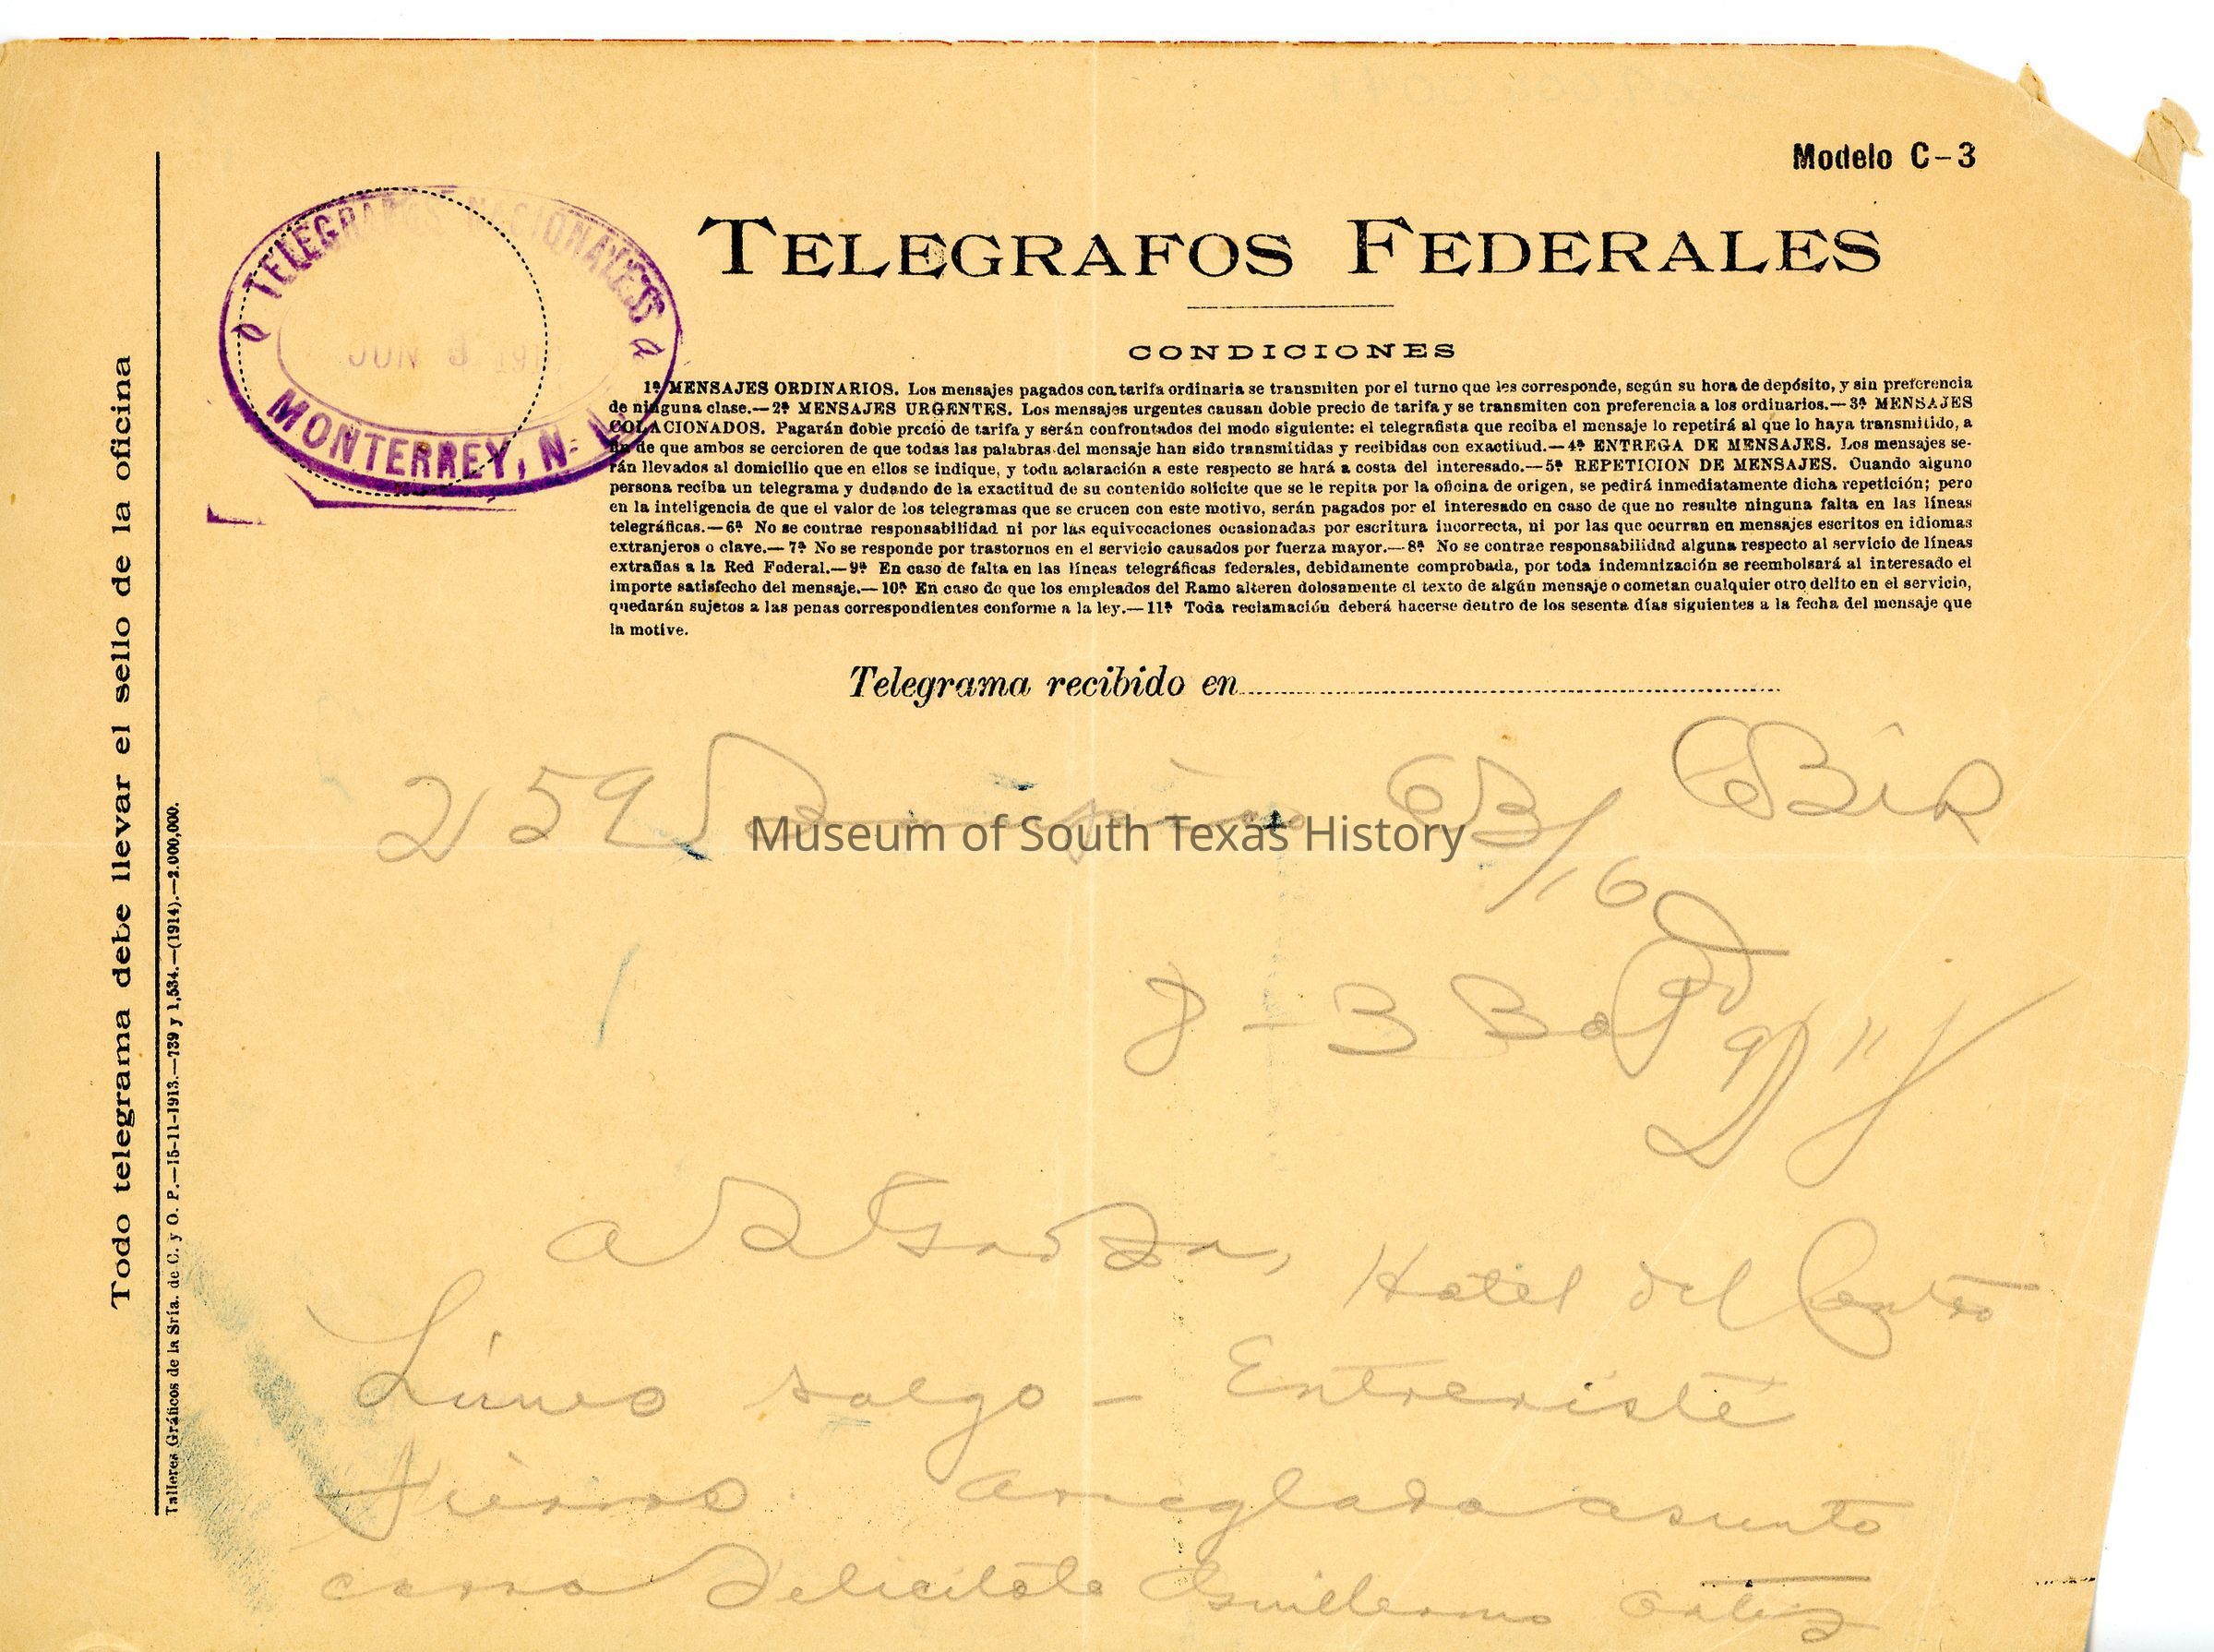 Modelo C-3
TELEGRAFOS NACIONALES
JUN 3 191
MONTERREY, N. L.
TELEGRAFOS FEDERALES
CONDICIONES
1ª MENSAJES ORDINARIOS. Los mensajes pagados con tarifa ordinaria se transmiten por el turno que les corresponde, según su hora de depósito, y sin preferencia
de ninguna clase.—2ª MENSAJES URGENTES. Los mensajes urgentes causan doble precio de tarifa y se transmiten con preferencia a los ordinarios.—3ª MENSAJES
COLACIONADOS. Pagarán doble precio de tarifa y serán confrontados del modo siguiente: el telegrafista que reciba el mensaje lo repetirá al que lo haya transmitido, a
fin de que ambos se cercioren de que todas las palabras del mensaje han sido transmitidas y recibidas con exactitud.—4ª ENTREGA DE MENSAJES. Los mensajes se-
rán llevados al domicilio que en ellos se indique, y toda aclaración a este respecto se hará a costa del interesado.—5ª REPETICION DE MENSAJES. Cuando alguno
persona reciba un telegrama y dudando de la exactitud de su contenido solicite que se le repita por la oficina de origen, se pedirá inmediatamente dicha repetición; pero
en la inteligencia de que el valor de los telegramas que se crucen con este motivo, serán pagados por el interesado en caso de que no resulte ninguna falta en las líneas
telegráficas.—6ª No se contrae responsabilidad ni por las equivocaciones ocasionadas por escritura incorrecta, ni por las que ocurran en mensajes escritos en idiomas
extranjeros o clave.—7ª No se responde por trastornos en el servicio causados por fuerza mayor.—8ª No se contrae responsabilidad alguna respecto al servicio de líneas
extrañas a la Red Federal.—9ª En caso de falta en las líneas telegráficas federales, debidamente comprobada, por toda indemnización se reembolsará al interesado el
importe satisfecho del mensaje.—10ª En caso de que los empleados del Ramo alteren dolosamente el texto de algún mensaje o cometan cualquier otro delito en el servicio,
quedarán sujetos a las penas correspondientes conforme a la ley.—11ª Toda reclamación deberá hacerse dentro de los sesenta días siguientes a la fecha del mensaje que
la motive.
Telegrama recibido en
259
Museum of South Texas History
16
8-3
Garza, Hotel del Centro
Lúnes salgo - Entreviste
arreglado asunto
casa Felicitolo Guillermo Ortiz
Todo telegrama debe llevar el sello de la oficina
Talleres Gráficos de la Sría. de C. y O. P.—15-11-1913.—739 y 1,534.—(1914).—2.000,000.